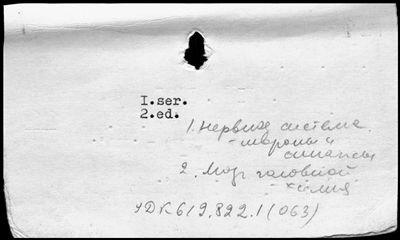 I.ser.
2.ed.
1. Нервная система
- нейроны и
синапсы
2. Мозг головной
- химия
УДК 612.822.1 (063)